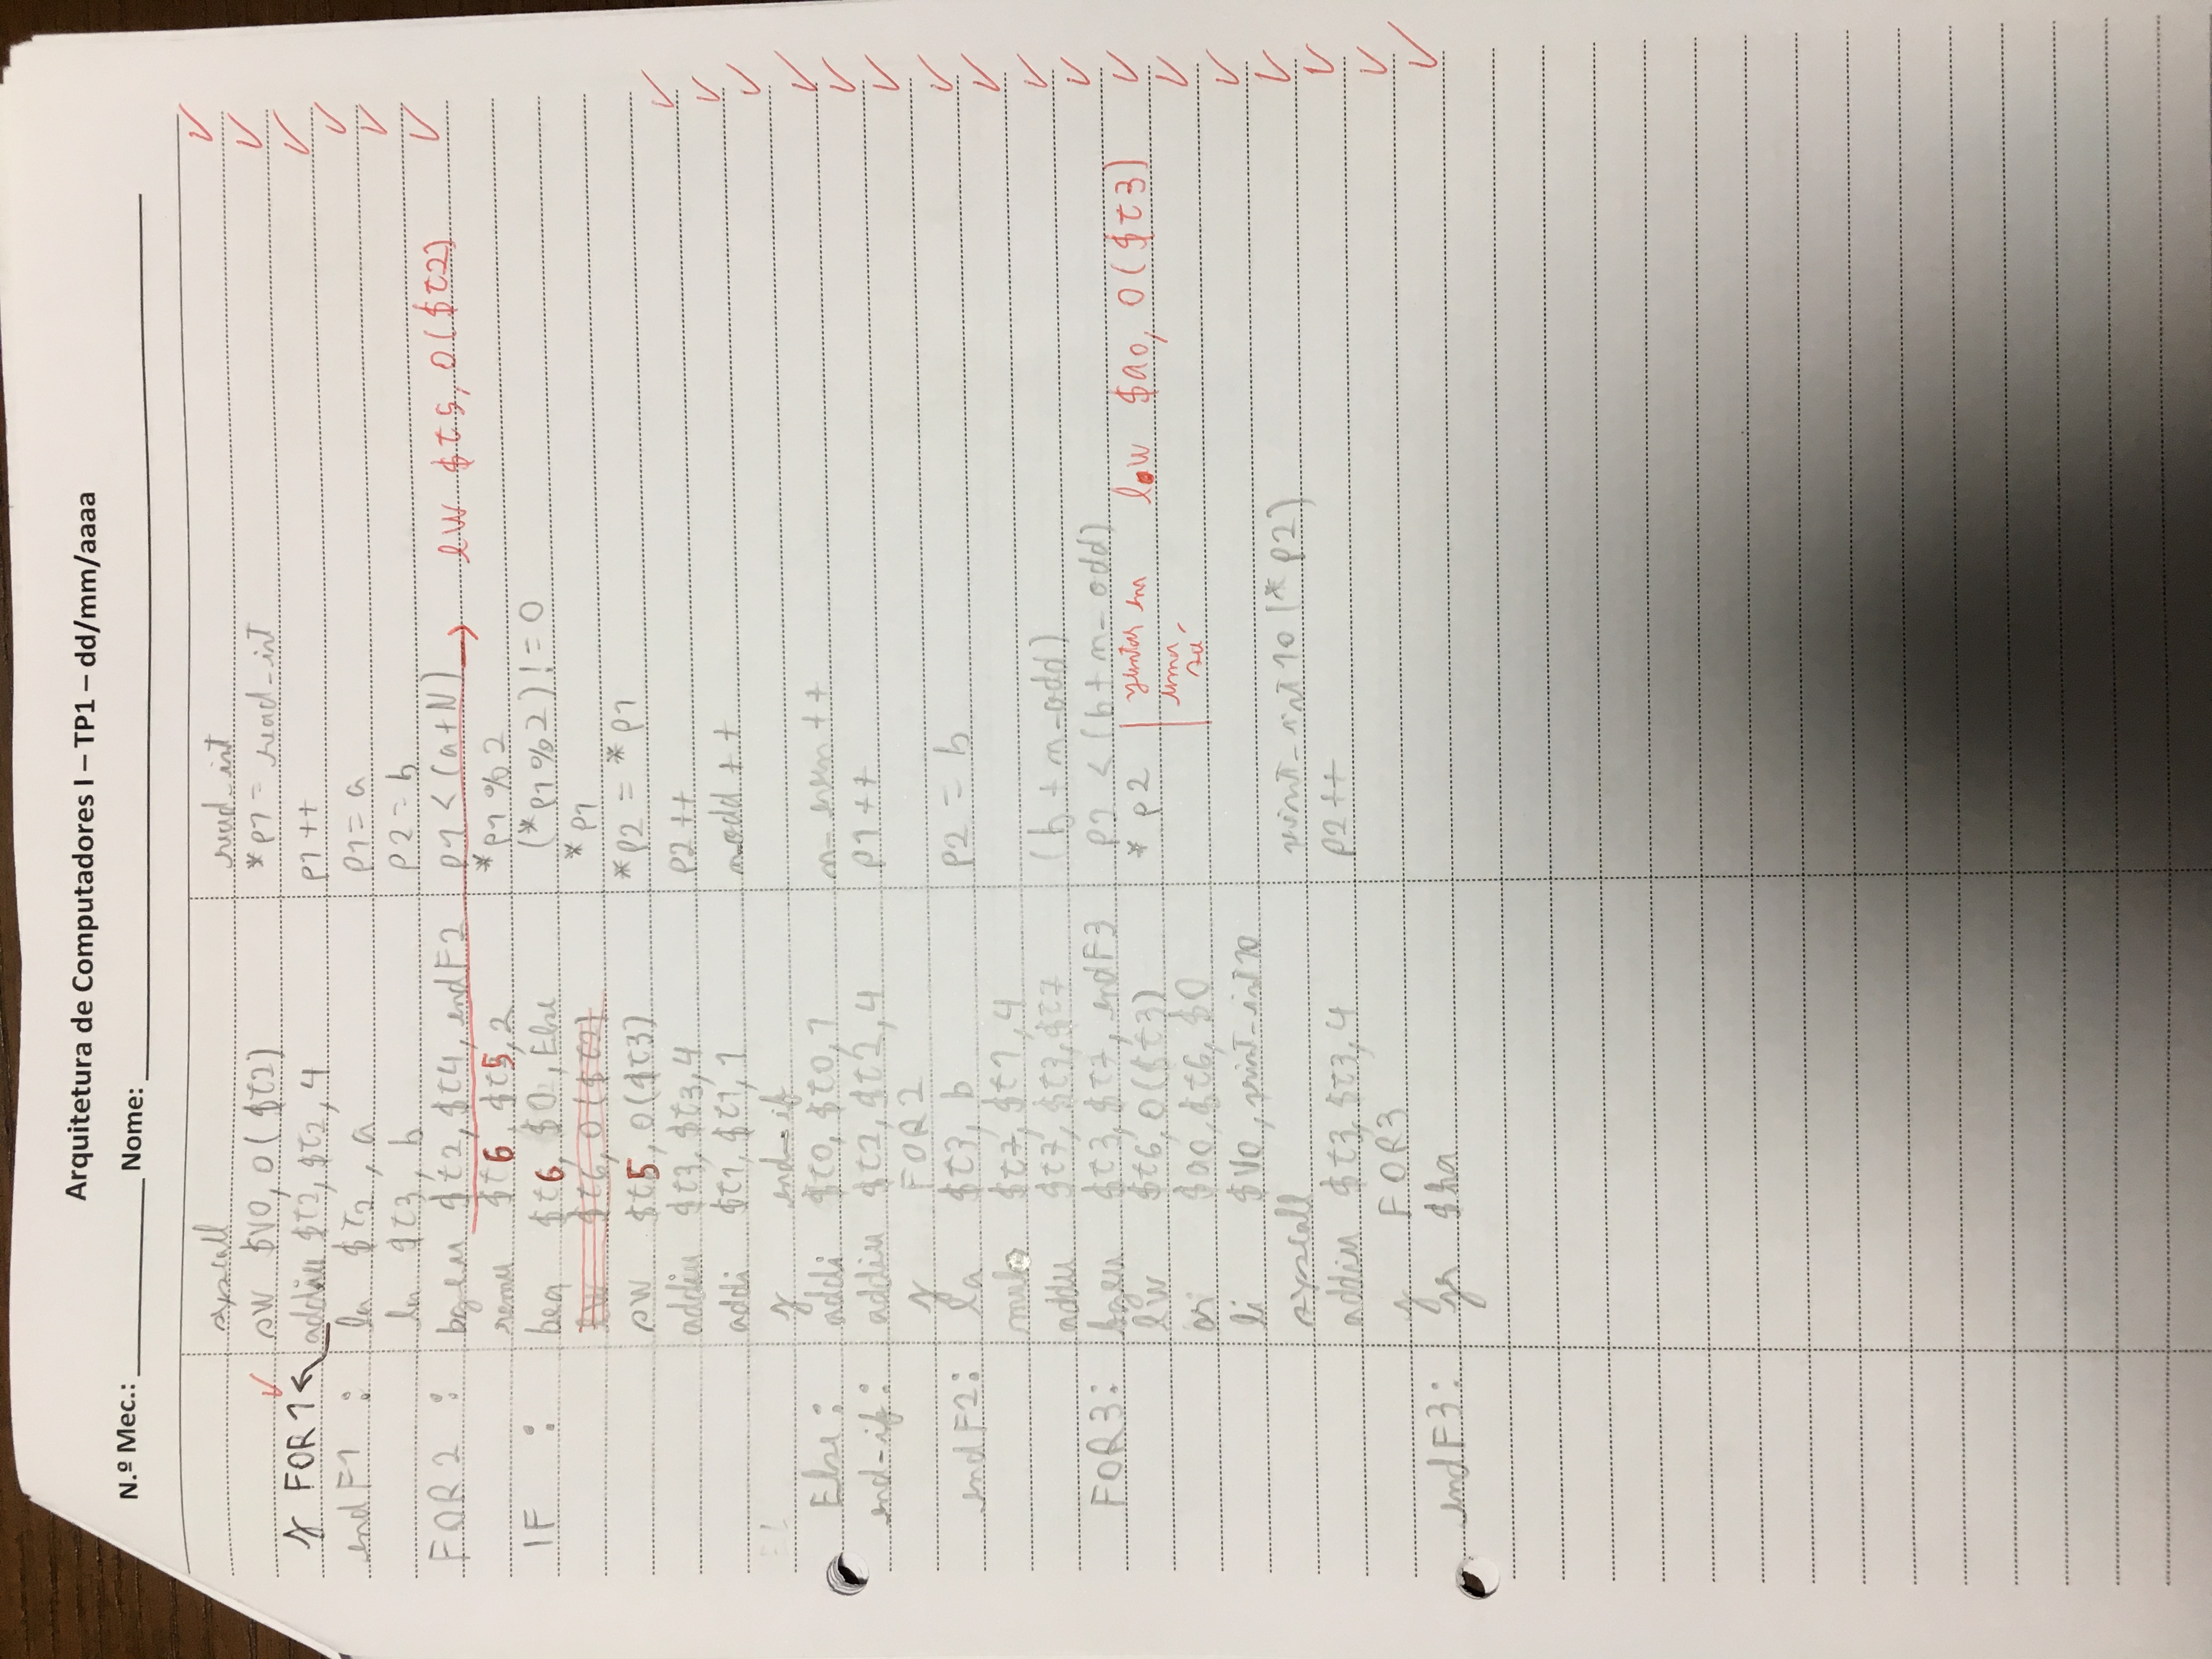 Arquitetura de Computadores I – TP1 – dd/mm/aaaa
N.º Mec.: Nome:
syscall read_int
sw $v0, 0($t2) *p1 = read_int
j FOR1 addiu $t2, $t2, 4 p1++
endF1 : la $t2, a p1 = a
la $t3, b p2 = b
FOR2 : bgeu $t2, $t4, endF2 p1 < (a+N) → lw $t5, 0($t2)
remu $t6, $t5, 2 *p1 % 2
IF : beq $t6, $0, Else (*p1 % 2) != 0
lw $t6, 0($t2) *p1
sw $t5, 0($t3) *p2 = *p1
addiu $t3, $t3, 4 p2++
addi $t1, $t1, 1 n_odd++
j end-if
Else : addi $t0, $t0, 1 n_even++
end-if : addiu $t2, $t2, 4 p1++
j FOR2
endF2 : la $t3, b p2 = b
mulo $t7, $t1, 4
addu $t7, $t3, $t7 (b + n_odd)
FOR3 : bgeu $t3, $t7, endF3 p2 < (b + n_odd)
lw $t6, 0($t3) *p2 juntar em lw $a0, 0($t3)
uma
or $a0, $t6, $0 só
li $v0, print_int10
syscall print_int10(*p2)
addiu $t3, $t3, 4 p2++
j FOR3
endF3 : jr $ra